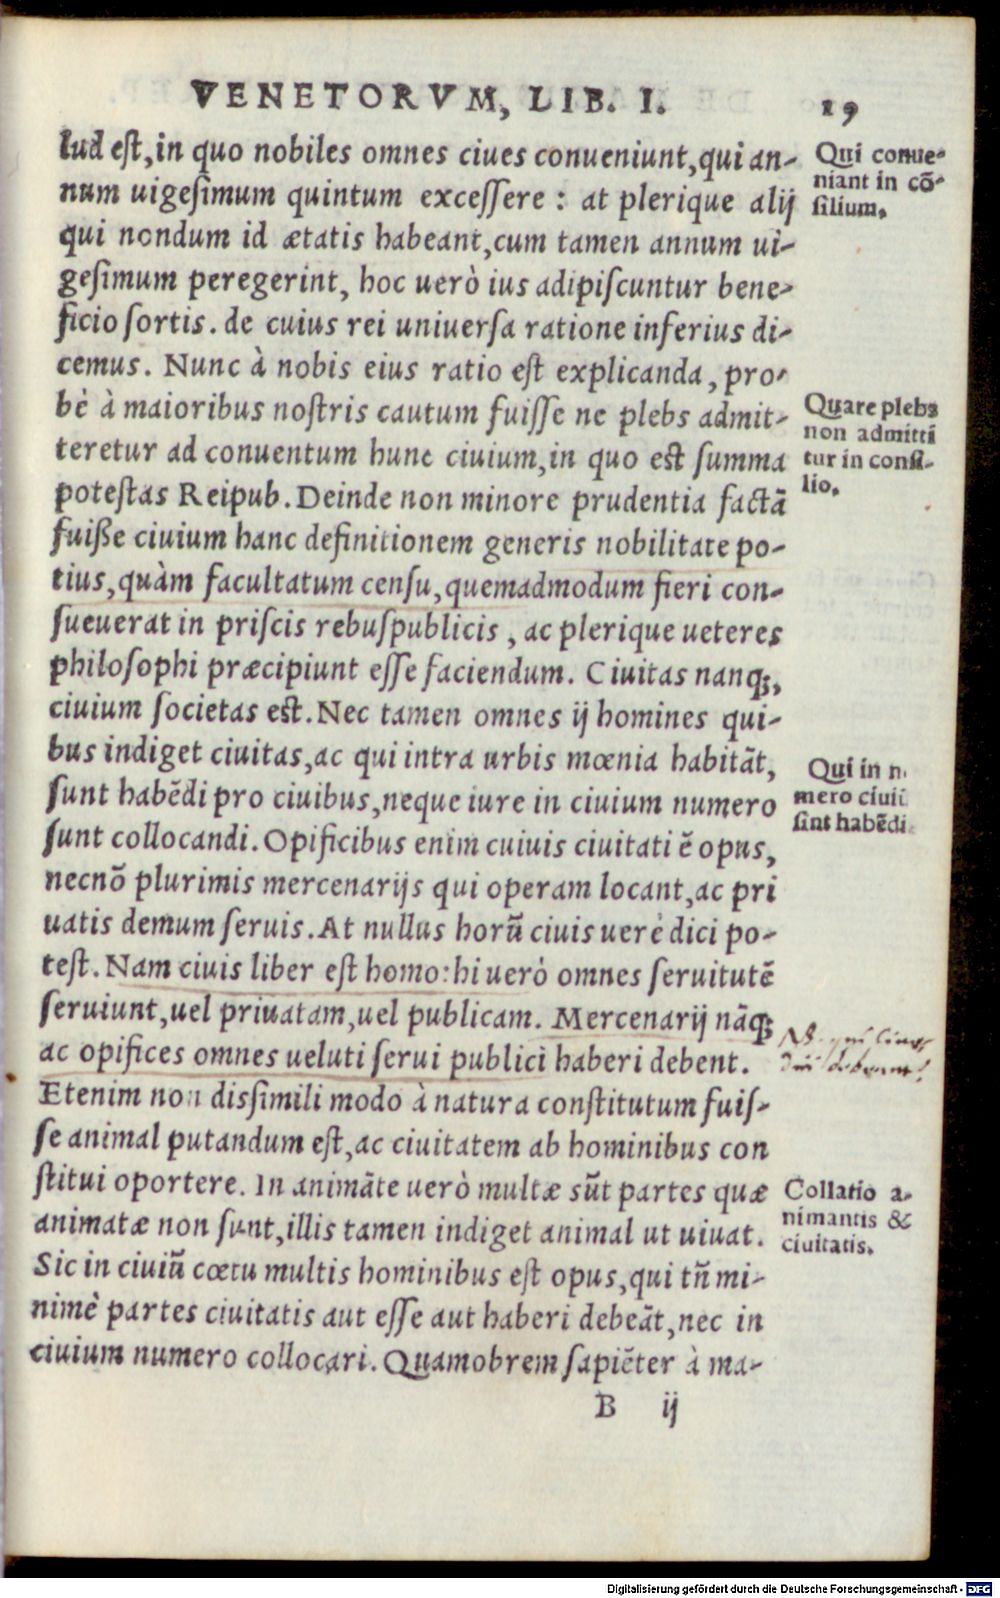 VENETORVM, LIB. I. 19
lud est, in quo nobiles omnes ciues conueniunt, qui an-
num uigesimum quintum excessere : at plerique alij
qui nondum id ætatis habeant, cum tamen annum ui-
gesimum peregerint, hoc uerò ius adipiscuntur bene-
ficio sortis. de cuius rei uniuersa ratione inferius di-
cemus. Nunc à nobis eius ratio est explicanda, pro-
bè à maioribus nostris cautum fuisse ne plebs admit-
teretur ad conuentum hunc ciuium, in quo est summa
potestas Reipub. Deinde non minore prudentia factā
fuiße ciuium hanc definitionem generis nobilitate po-
tius, quàm facultatum censu, quemadmodum fieri con-
sueuerat in priscis rebuspublicis , ac plerique ueteres
philosophi præcipiunt esse faciendum. Ciuitas nanq;,
ciuium societas est. Nec tamen omnes ij homines qui-
bus indiget ciuitas, ac qui intra urbis mœnia habitāt,
sunt habēdi pro ciuibus, neque iure in ciuium numero
sunt collocandi. Opificibus enim cuiuis ciuitati ē opus,
necnō plurimis mercenarijs qui operam locant, ac pri
uatis demum seruis. At nullus horū ciuis uerè dici po-
test. Nam ciuis liber est homo: hi uerò omnes seruitutē
seruiunt, uel priuatam, uel publicam. Mercenarij nāq;
ac opifices omnes ueluti serui publici haberi debent.
Etenim non dissimili modo à natura constitutum fuis-
se animal putandum est, ac ciuitatem ab hominibus con
stitui oportere. In animāte uerò multæ sūt partes quæ
animatæ non sunt, illis tamen indiget animal ut uiuat.
Sic in ciuiū cœtu multis hominibus est opus, qui tñ mi-
nimè partes ciuitatis aut esse aut haberi debeāt, nec in
ciuium numero collocari. Quamobrem sapiēter à ma-
B ij
Qui conue-
niant in cō-
silium.
Quare plebs
non admitti
tur in consi-
lio.
Qui in n
mero ciui
sint habēdi
Collatio a-
nimantis &
ciuitatis.
Digitalisierung gefördert durch die Deutsche Forschungsgemeinschaft - DFG